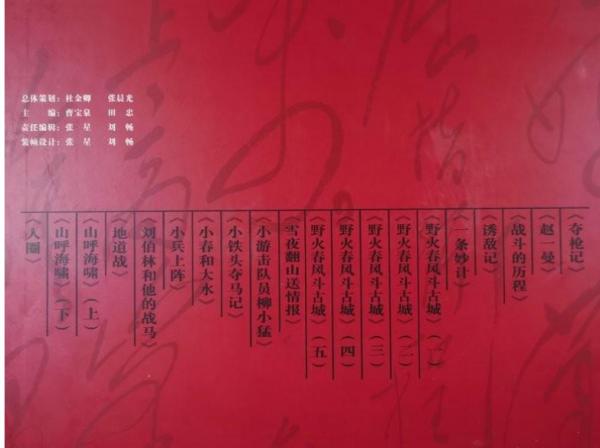 总体策划：杜金卿 张晨光
主 编：曹宝泉 田 忠
责任编辑：张 星 刘 畅
装帧设计：张 星 刘 畅
《夺枪记》
《赵一曼》
《战斗的历程》
《诱敌记》
《一条妙计》
《野火春风斗古城》（一）
《野火春风斗古城》（二）
《野火春风斗古城》（三）
《野火春风斗古城》（四）
《野火春风斗古城》（五）
《雪夜翻山送情报》
《小游击队员柳小猛》
《小铁头夺马记》
《小春和大水》
《小兵上阵》
《刘伯林和他的战马》
《地道战》
《山呼海啸》（上）
《山呼海啸》（下）
《人圈》